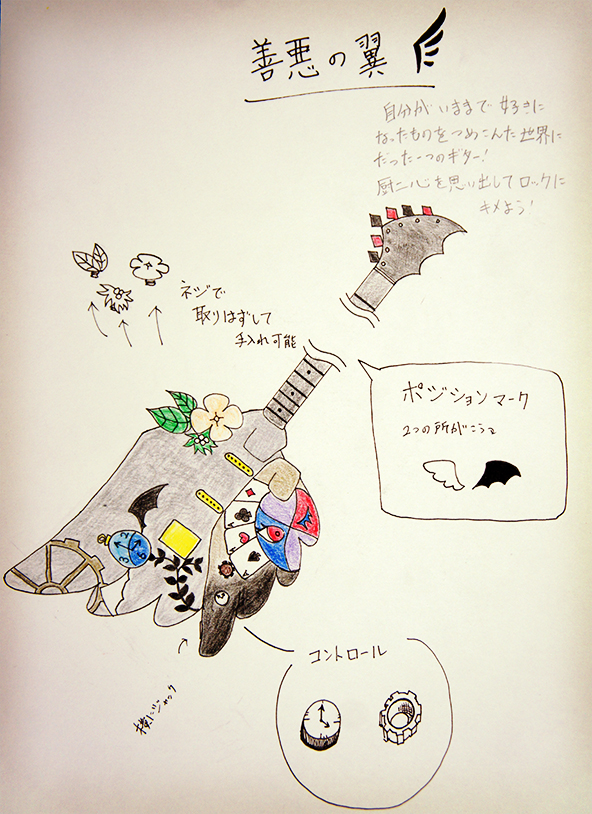 善悪の翼
自分がいままで好きに
なったものをつめこんだ世界に
だった一つのギター!
厨二心を思い出してロックに
キメよう!
ネジで
取りはずして
手入れ可能
ポジションマーク
2つの所がこうで
コントロール
横にジャック